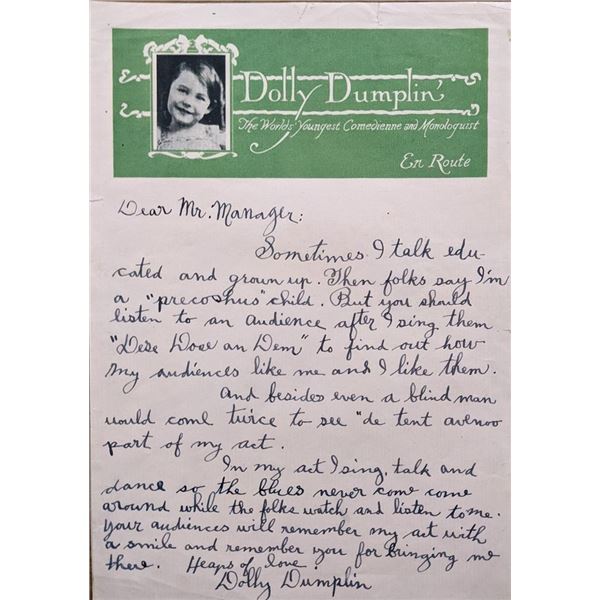 Dolly Dumplin'
The Worlds Youngest Comedienne and Monologuist
En Route
Dear Mr. Manager:
Sometimes I talk edu-
cated and grown up. Then folks say I'm
a "precoshus" child. But you should
listen to an audience after I sing them
"Dese Dose an Dem" to find out how
my audiences like me and I like them.
And besides even a blind man
would come twice to see "de tent avenoo
part of my act.
In my act I sing, talk and
dance so the blues never come come
around while the folks watch and listen to me.
Your audiences will remember my act with
a smile and remember you for bringing me
there. Heaps of love!
Dolly Dumplin